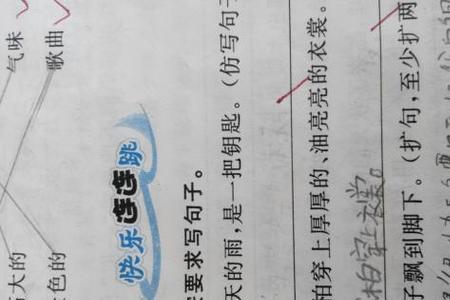 气味
歌曲
大的
色的
快乐连连跳
要求写句子。
天的雨,是一把钥匙。(仿写句子
柏穿上厚厚的、油亮亮的衣裳。
柏穿上衣裳。
子飘到脚下。(扩句,至少扩两